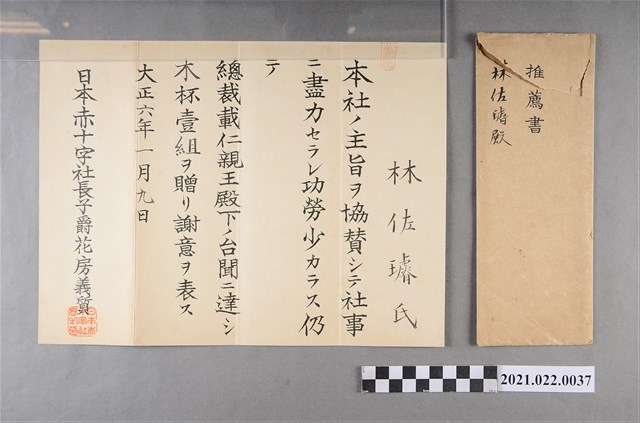 林佐璿氏
本社ノ主旨ヲ協賛シテ社事
ニ盡力セラレ功勞少カラス仍
テ
總裁載仁親王殿下ノ台聞ニ達シ
木杯壹組ヲ贈リ謝意ヲ表ス
大正六年一月九日
日本赤十字社長子爵花房義質
推薦書
林佐璿殿
2021.022.0037